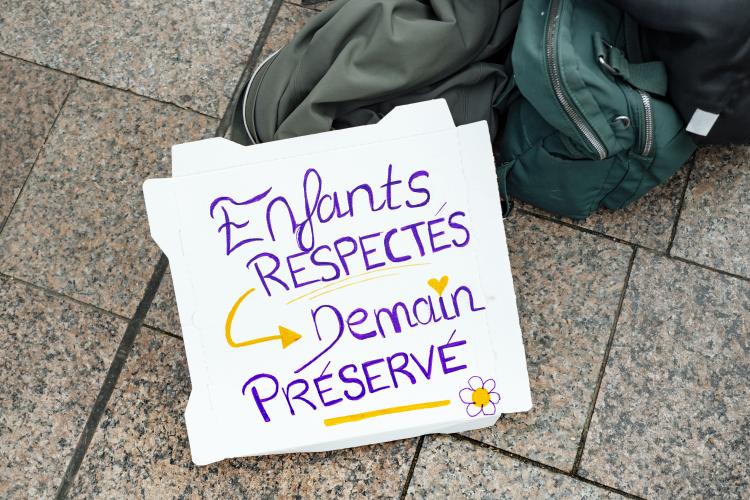 Enfants
RESPECTÉS
Demain
PRÉSERVÉ